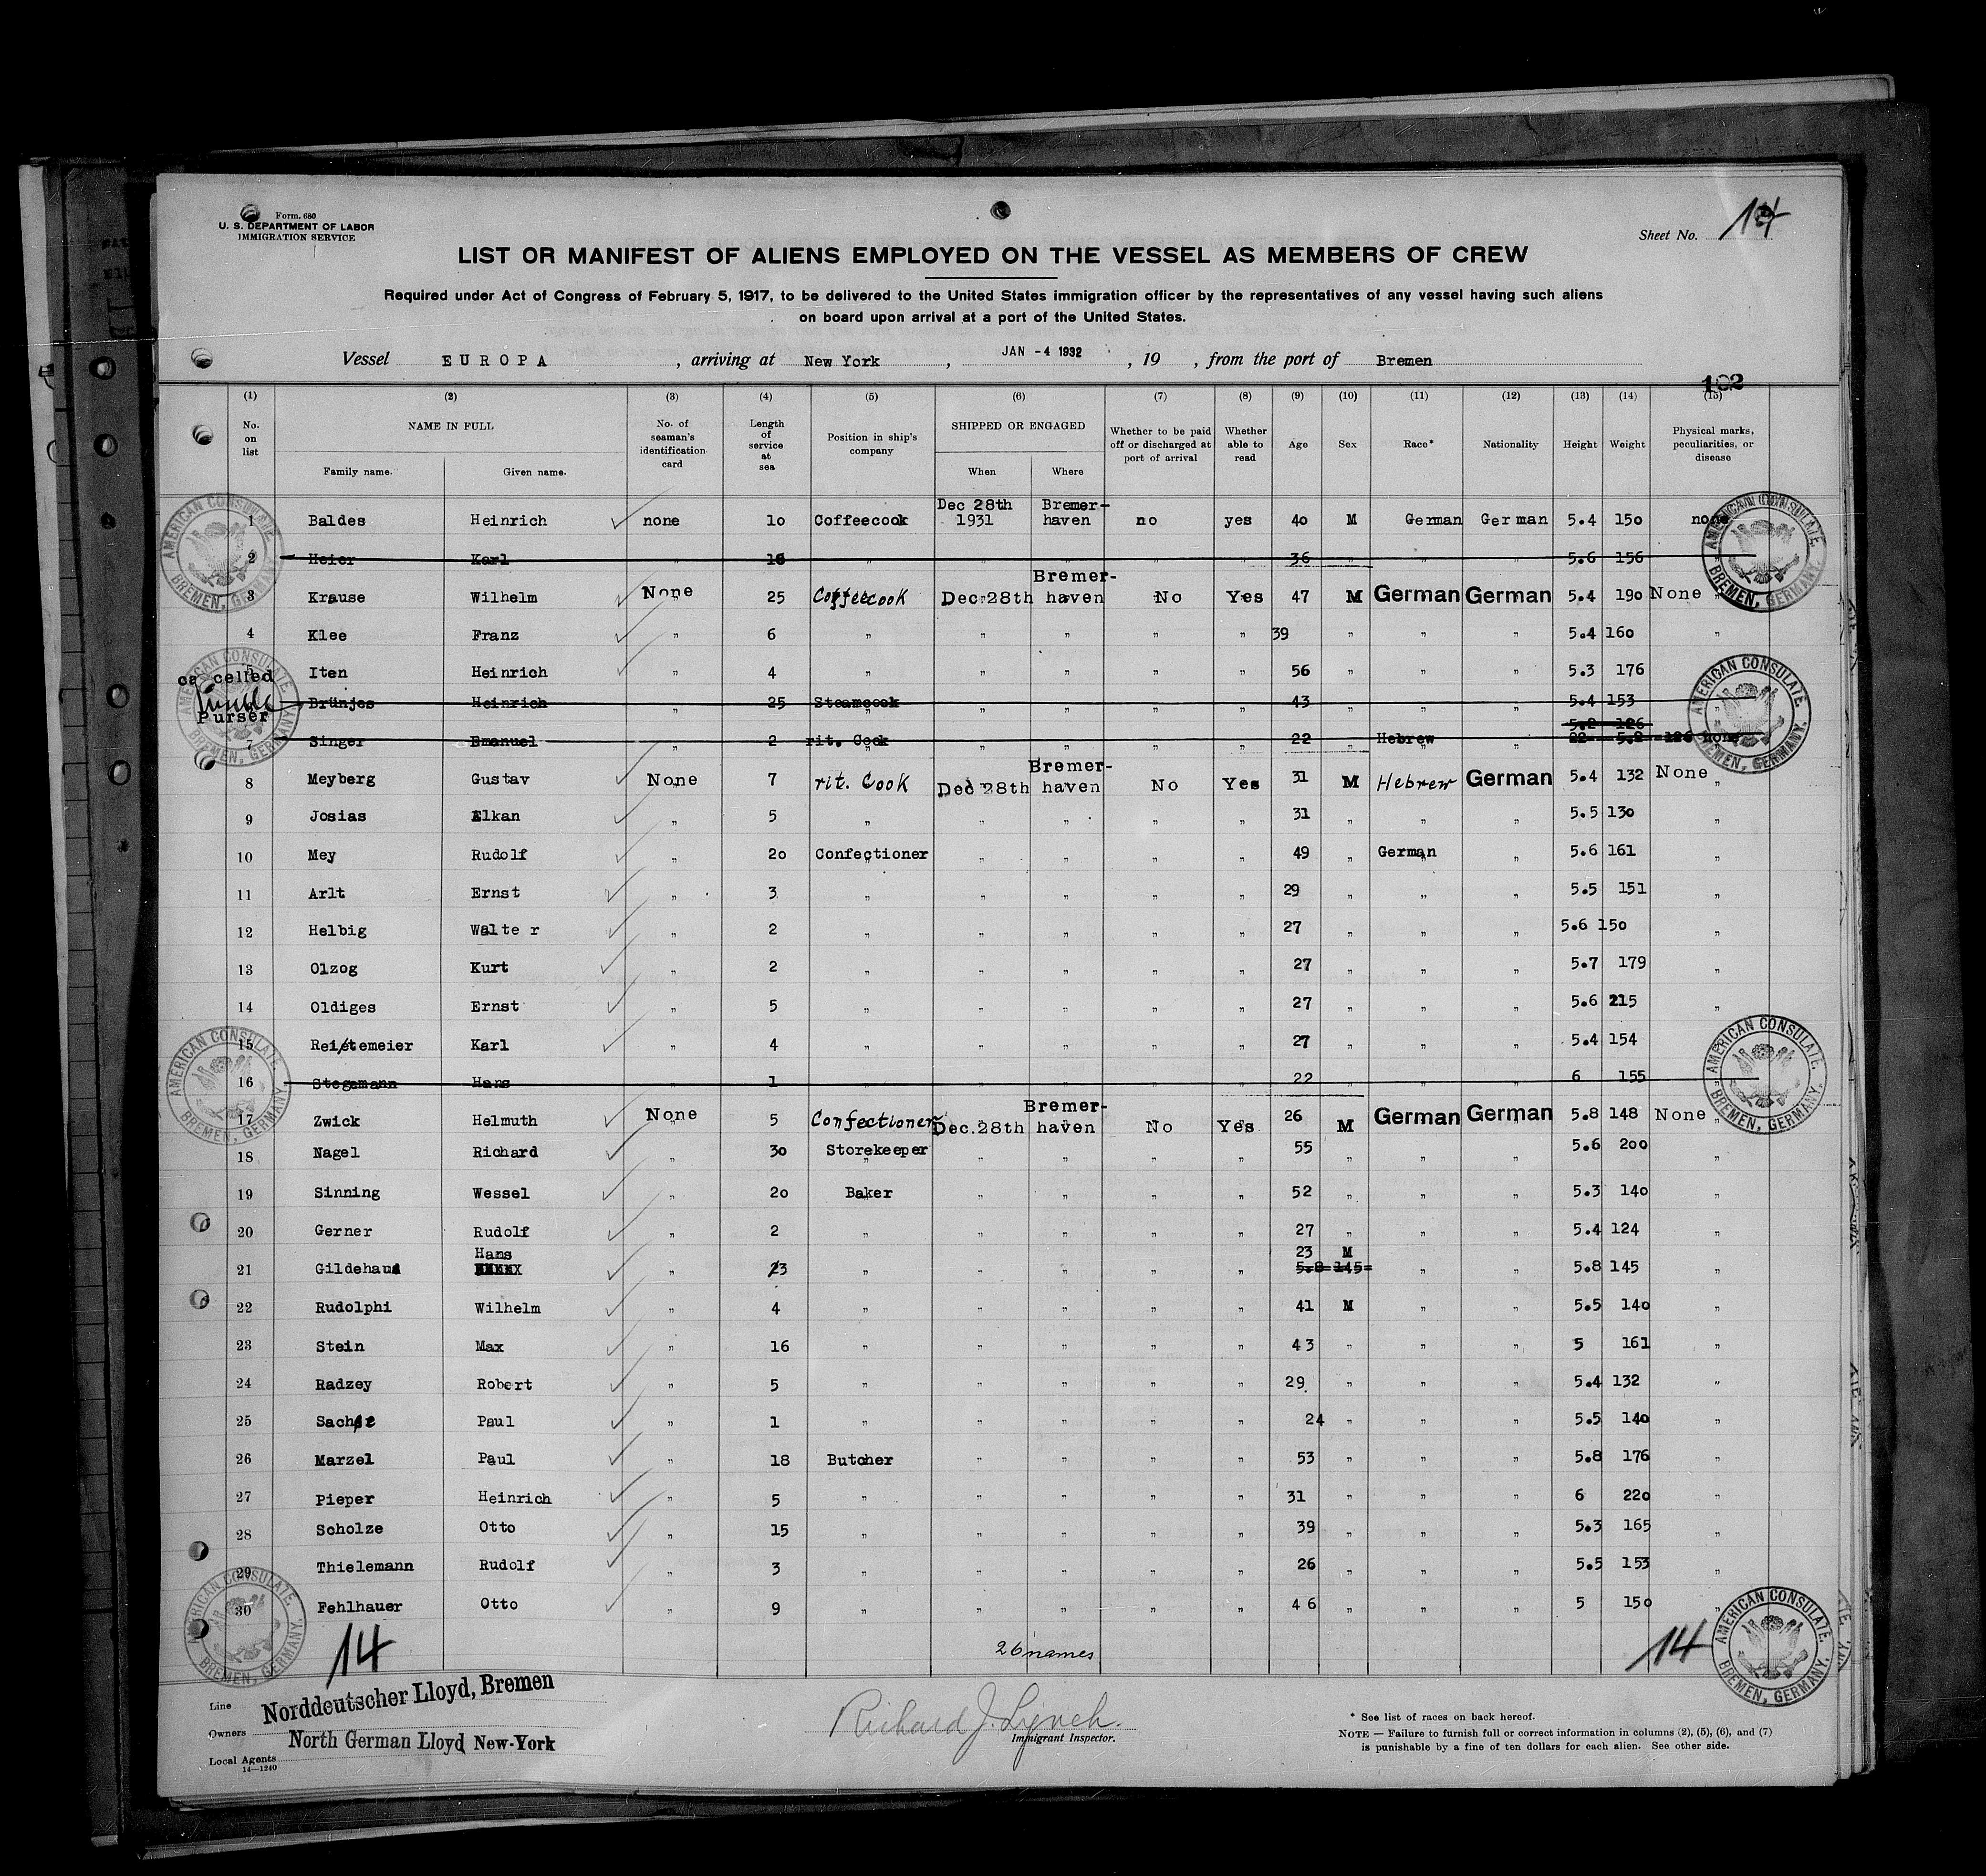 Form. 680
U. S. DEPARTMENT OF LABOR
IMMIGRATION SERVICE
Sheet No. 14
LIST OR MANIFEST OF ALIENS EMPLOYED ON THE VESSEL AS MEMBERS OF CREW
Required under Act of Congress of February 5, 1917, to be delivered to the United States immigration officer by the representatives of any vessel having such aliens
on board upon arrival at a port of the United States.
Vessel EUROPA , arriving at New York , JAN -4 1932 , 19 , from the port of Bremen
(1) (2) (3) (4) (5) (6) (7) (8) (9) (10) (11) (12) (13) (14) (15)
No. on list NAME IN FULL Family name. Given name. No. of seaman's identification card Length of service at sea Position in ship's company SHIPPED OR ENGAGED When Where Whether to be paid off or discharged at port of arrival Whether able to read Age Sex Race* Nationality Height Weight Physical marks, peculiarities, or disease
1 Baldes Heinrich none 10 Coffeecook Dec 28th 1931 Bremer-haven no yes 40 M German German 5.4 150 none
2 Heier Karl 16 „ „ „ „ „ 36 „ „ „ 5.6 156
3 Krause Wilhelm None 25 Coffeecook Dec 28th Bremer-haven No Yes 47 M German German 5.4 190 None
4 Klee Franz „ 6 „ „ „ „ „ 39 „ „ „ 5.4 160 „
5 Iten Heinrich „ 4 „ „ „ „ „ 56 „ „ „ 5.3 176 „
Purser
Brünjes Heinrich „ 25 Steamcook „ „ „ „ 43 „ „ „ 5.4 153 „
5.2 126
7 Singer Emanuel „ 2 rit. Cook „ „ „ „ 22 „ Hebrew „ 22 5.2 126 none
8 Meyberg Gustav None 7 rit. Cook Dec 28th Bremer-haven No Yes 31 M Hebrew German 5.4 132 None
9 Josias Elkan „ 5 „ „ „ „ „ 31 „ „ „ 5.5 130 „
10 Mey Rudolf „ 20 Confectioner „ „ „ „ 49 „ German „ 5.6 161 „
11 Arlt Ernst „ 3 „ „ „ „ „ 29 „ „ „ 5.5 151 „
12 Helbig Walte r „ 2 „ „ „ „ „ 27 „ „ „ 5.6 150 „
13 Olzog Kurt „ 2 „ „ „ „ „ 27 „ „ „ 5.7 179 „
14 Oldiges Ernst „ 5 „ „ „ „ „ 27 „ „ „ 5.6 215 „
15 Reistemeier Karl „ 4 „ „ „ „ „ 27 „ „ „ 5.4 154 „
16 Stegemann Hans „ 1 „ „ „ „ „ 22 „ „ „ 6 155
17 Zwick Helmuth None 5 Confectioner Dec.28th Bremer-haven No Yes 26 M German German 5.8 148 None
18 Nagel Richard „ 30 Storekeeper „ „ „ „ 55 „ „ „ 5.6 200 „
19 Sinning Wessel „ 20 Baker „ „ „ „ 52 „ „ „ 5.3 140 „
20 Gerner Rudolf „ 2 „ „ „ „ „ 27 „ „ „ 5.4 124 „
Hans 23 M
21 Gildehaus „ 3 „ „ „ „ „ 5.8 145 „ „ 5.8 145 „
22 Rudolphi Wilhelm „ 4 „ „ „ „ „ 41 M „ „ 5.5 140 „
23 Stein Max „ 16 „ „ „ „ „ 43 „ „ „ 5 161 „
24 Radzey Robert „ 5 „ „ „ „ „ 29 „ „ „ 5.4 132 „
25 Paul „ 1 „ „ „ „ „ 24 „ „ „ 5.5 140 „
26 Marzel Paul „ 18 Butcher „ „ „ „ 53 „ „ „ 5.8 176 „
27 Pieper Heinrich „ 5 „ „ „ „ „ 31 „ „ „ 6 220 „
28 Scholze Otto „ 15 „ „ „ „ „ 39 „ „ „ 5.3 165 „
29 Thielemann Rudolf „ 3 „ „ „ „ „ 26 „ „ „ 5.5 153 „
30 Fehlhauer Otto „ 9 „ „ „ „ „ 46 „ „ „ 5 150 „
14 26 names 14
AMERICAN CONSULATE. BREMEN, GERMANY.
Line Norddeutscher Lloyd, Bremen
Owners North German Lloyd New-York
Local Agents
14—1240
Richard J. Lynch.
Immigrant Inspector.
* See list of races on back hereof.
NOTE — Failure to furnish full or correct information in columns (2), (5), (6), and (7)
is punishable by a fine of ten dollars for each alien. See other side.